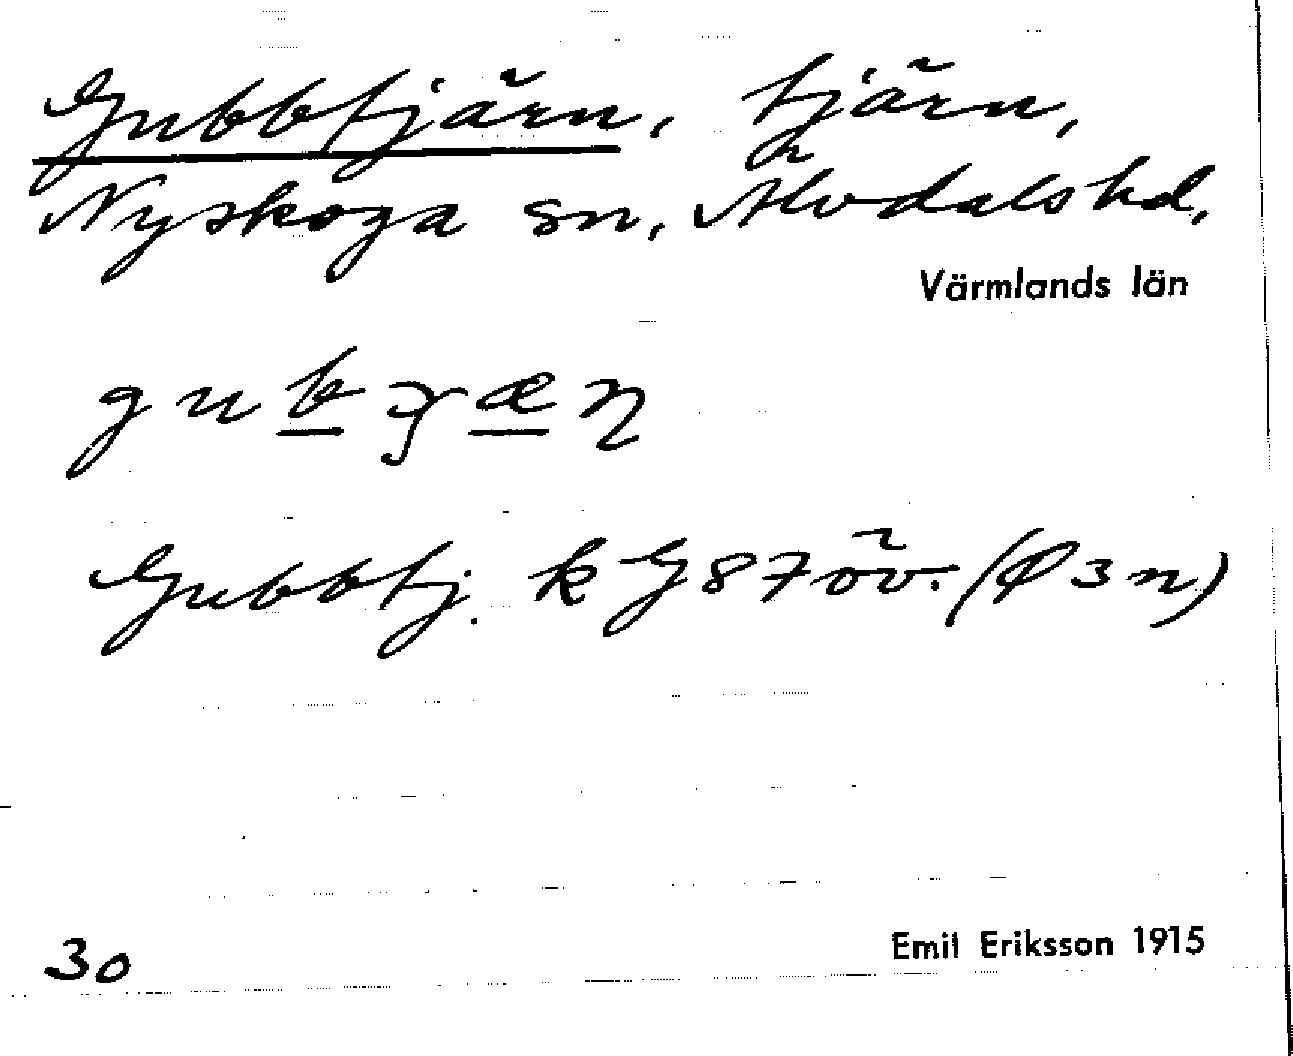 Gubbtjärn, tjärn,
Nyskoga sn, Älvdals hd,
Värmlands län
Gubbtj. k G 87 öv. (Ø 3 n)
30
Emil Eriksson 1915